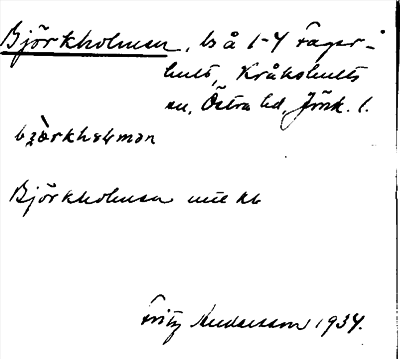 Björkholmen, ls å 1-4 Fager-
hult, Kråkshults
sn, Östra hd, Jönk. l.
bjærkhɷlmən
Björkholmen
Fritz Andersson 1934.